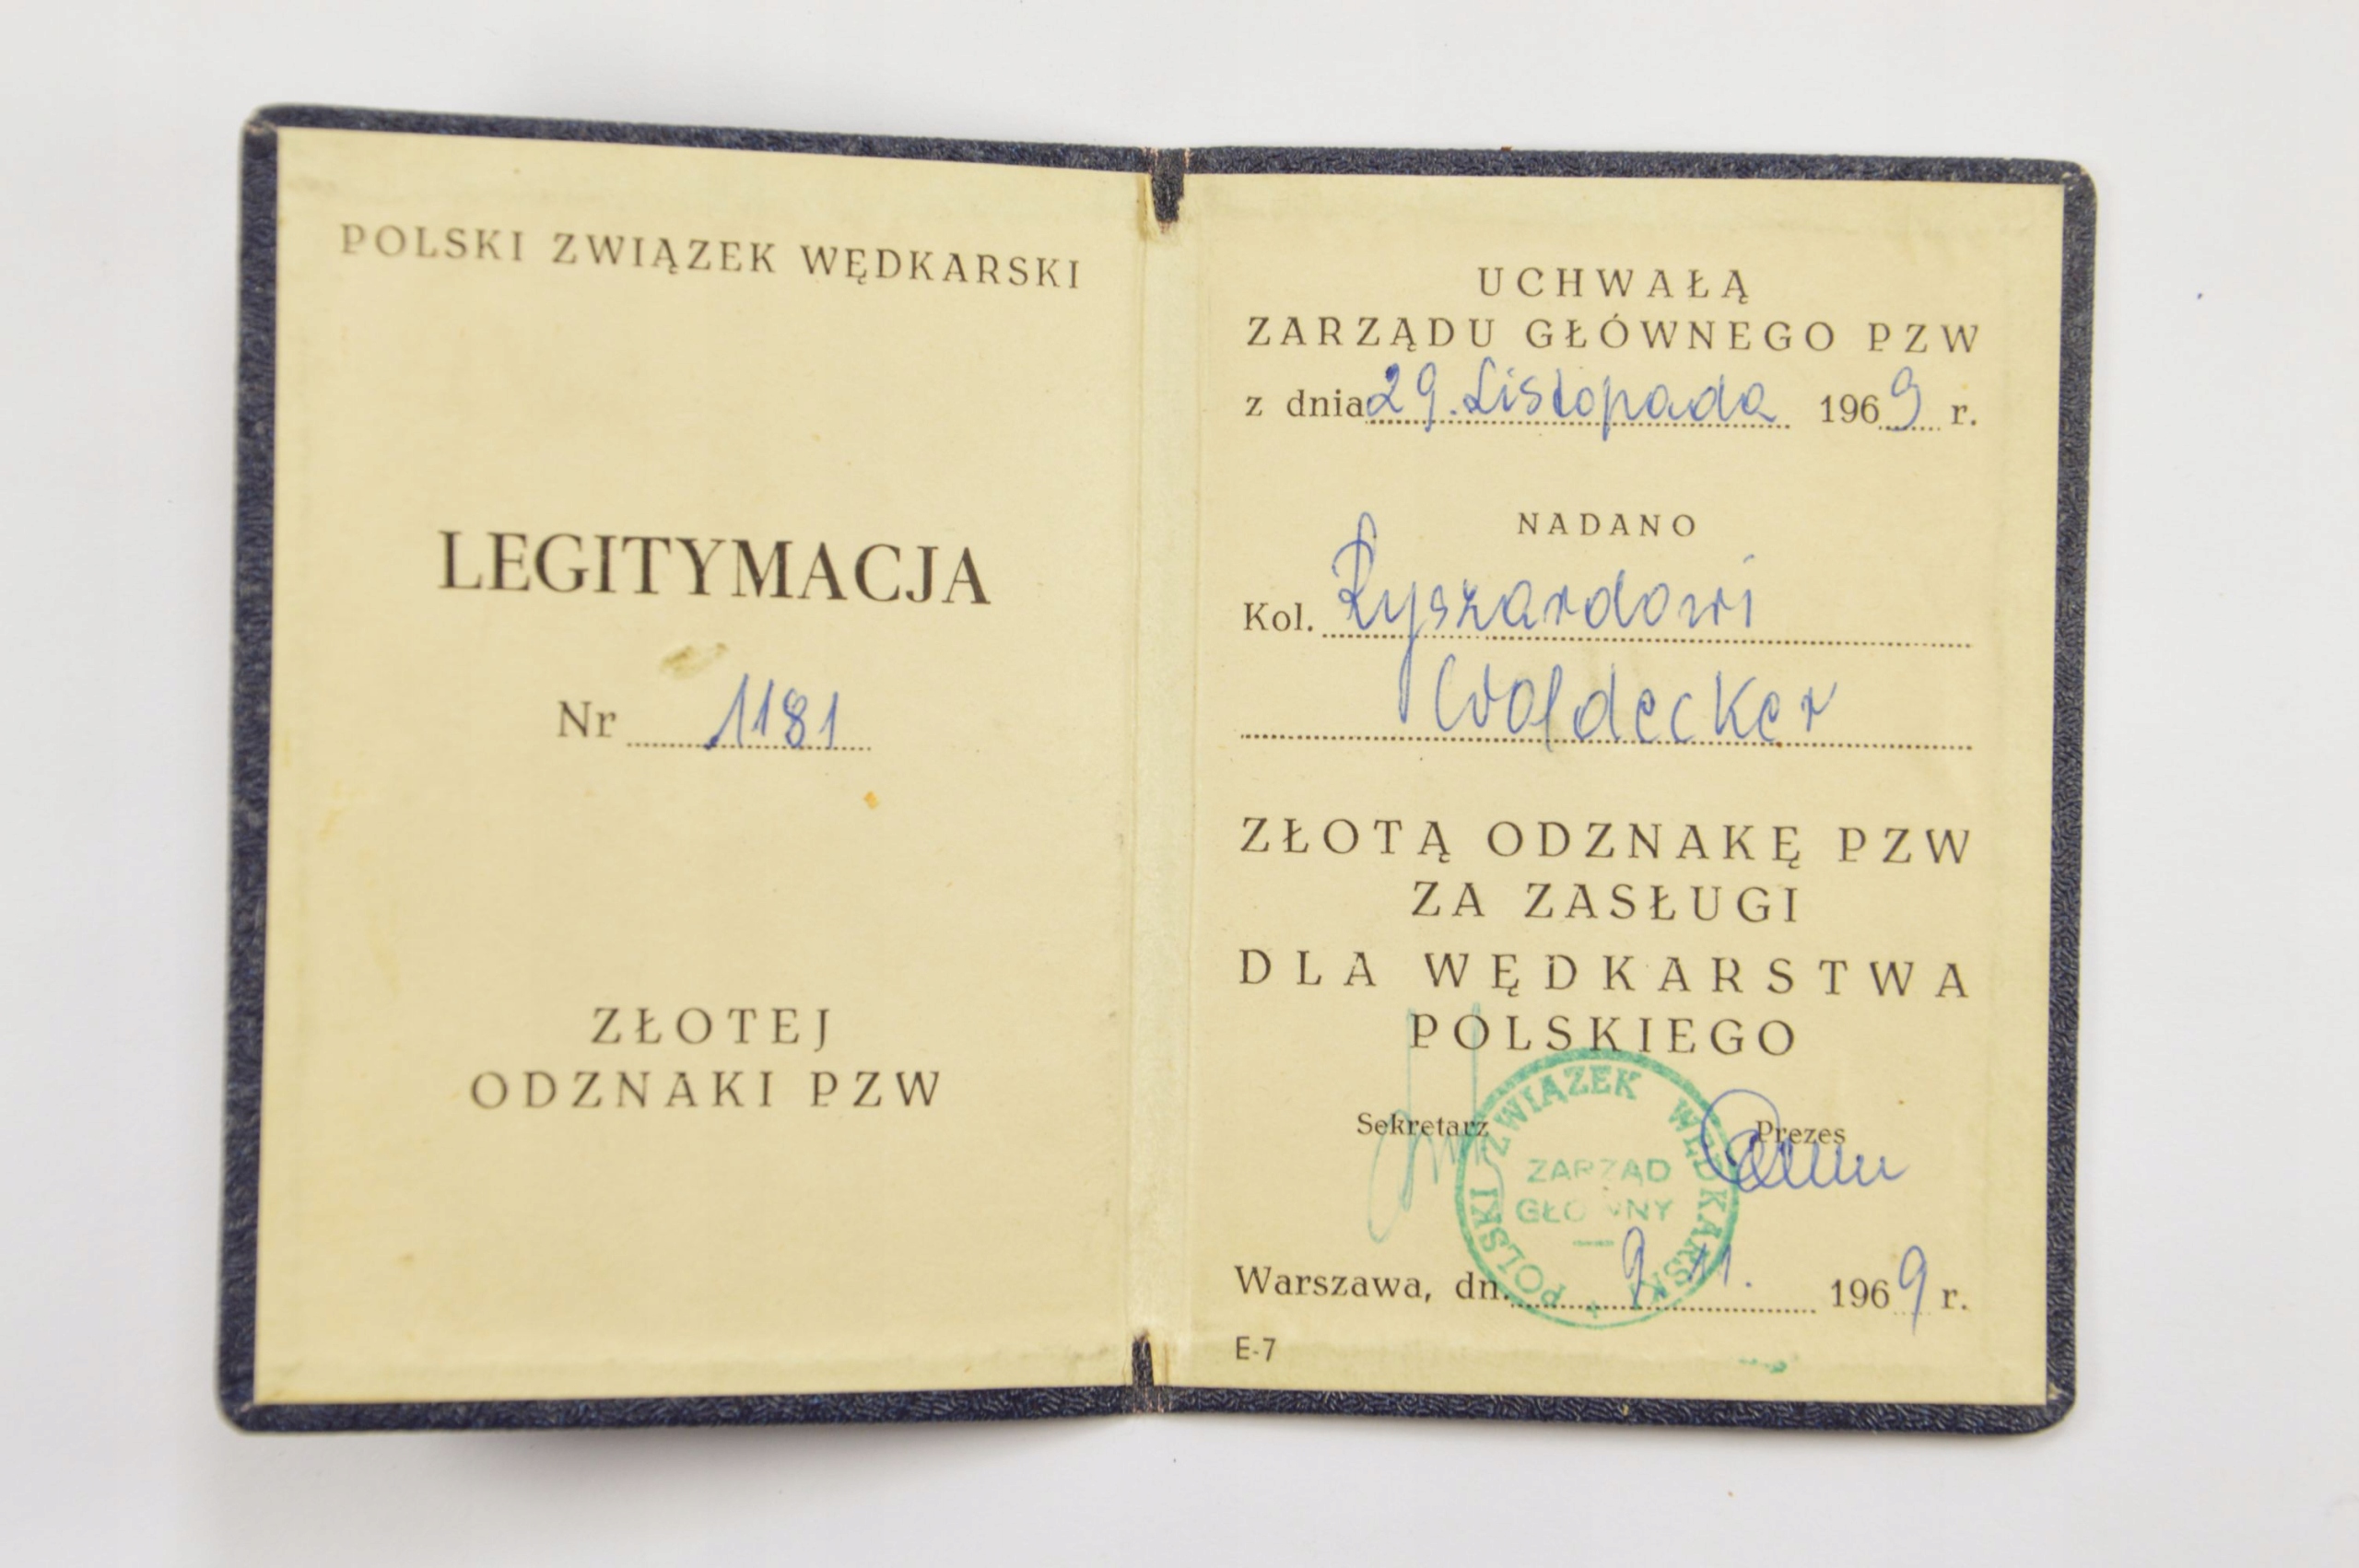 POLSKI ZWIĄZEK WĘDKARSKI
LEGITYMACJA
Nr 1181
ZŁOTEJ
ODZNAKI PZW
UCHWAŁĄ
ZARZĄDU GŁÓWNEGO PZW
z dnia 29. Listopada 1969 r.
NADANO
Kol. Ryszardowi
Woldecker
ZŁOTĄ ODZNAKĘ PZW
ZA ZASŁUGI
DLA WĘDKARSTWA
POLSKIEGO
Sekretarz Prezes
POLSKI ZWIĄZEK WĘDKARSKI
ZARZĄD
GŁÓWNY
Warszawa, dn. 9. 11. 1969 r.
E-7